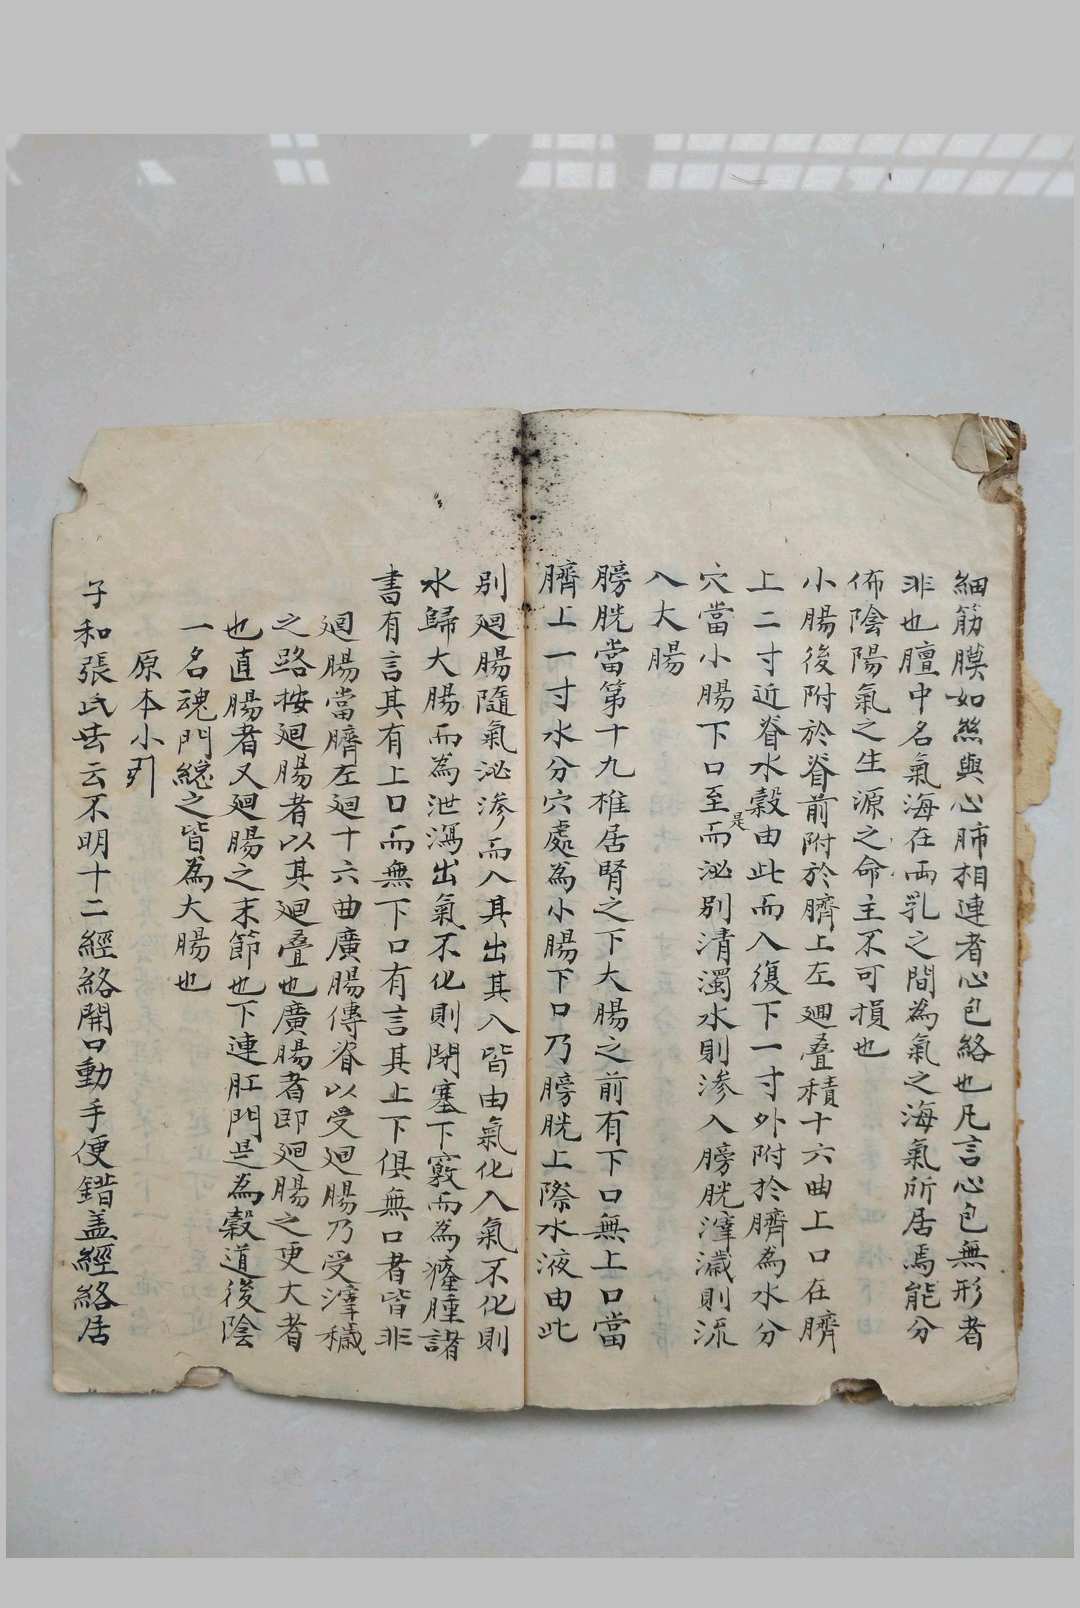 細筋膜如絲與心肺相連者心包絡也凡言心包無形者
非也膻中名氣海在両乳之間為氣之海氣所居焉能分
佈陰陽氣之生源之命主不可損也
小腸後附於脊前附於臍上左廻叠積十六曲上口在臍
上二寸近脊水穀由此而入復下一寸外附於臍為水分
穴當小腸下口至是而泌別清濁水則渗入膀胱滓濊則流
入大腸
膀胱當第十九椎居腎之下大腸之前有下口無上口當
臍上一寸水分穴處為小腸下口乃膀胱上際水液由此
別廻腸隨氣泌渗而入其出其入皆由氣化入氣不化則
水歸大腸而為泄瀉出氣不化則閉塞下竅而為癃腫諸
書有言其有上口而無下口有言其上下俱無口者皆非
廻腸當臍左廻十六曲廣腸傳脊以受廻腸乃受滓穢
之路按廻腸者以其廻叠也廣腸者即廻腸之更大者
也直腸者又廻腸之末節也下連肛門是為穀道後陰
一名魂門總之皆為大腸也
原本小引
子和張氏甞云不明十二經絡開口動手便錯盖經絡居